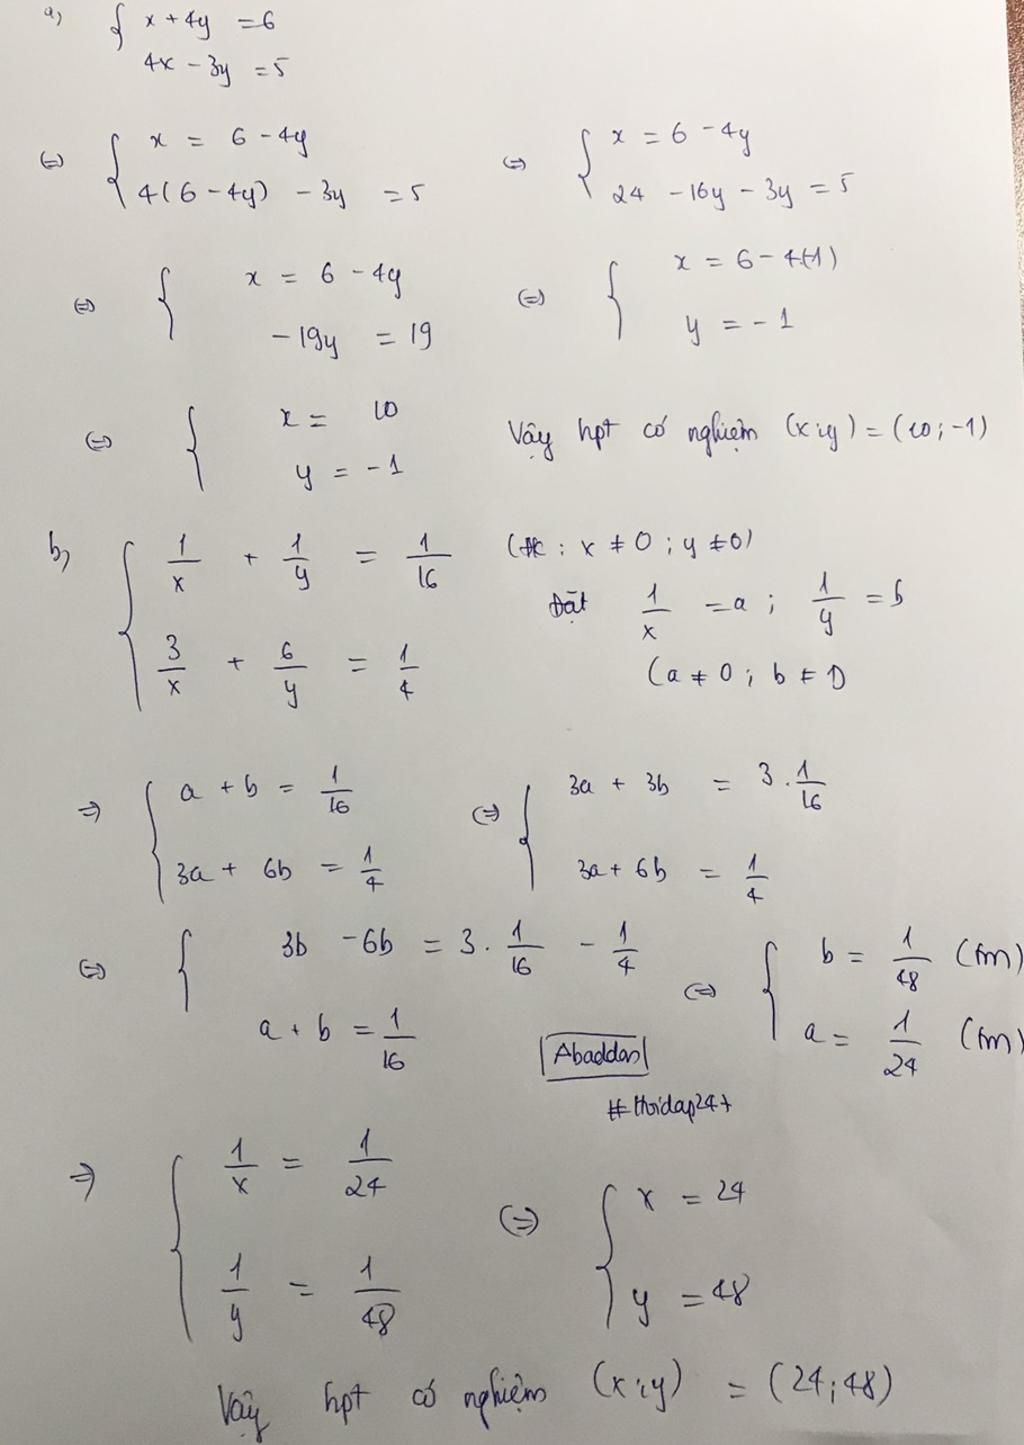 a, { x + 4y = 6
4x - 3y = 5
(=) { x = 6 - 4y
4(6 - 4y) - 3y = 5
(=) { x = 6 - 4y
24 - 16y - 3y = 5
(=) { x = 6 - 4y
-19y = 19
(=) { x = 6 - 4.(-1)
y = -1
(=) { x = 10
y = -1
Vậy hpt có nghiệm (x;y) = (10;-1)
b, { 1/x + 1/y = 1/16
3/x + 6/y = 1/4
(đk : x ≠ 0 ; y ≠ 0)
Đặt 1/x = a ; 1/y = b
(a ≠ 0 ; b ≠ 0)
=> { a + b = 1/16
3a + 6b = 1/4
(=) { 3a + 3b = 3 . 1/16
3a + 6b = 1/4
(=) { 3b - 6b = 3 . 1/16 - 1/4
a + b = 1/16
(=) { b = 1/48 (tm)
a = 1/24 (tm)
Abaddon
#Hoidap247
=> { 1/x = 1/24
1/y = 1/48
(=) { x = 24
y = 48
Vậy hpt có nghiệm (x;y) = (24;48)